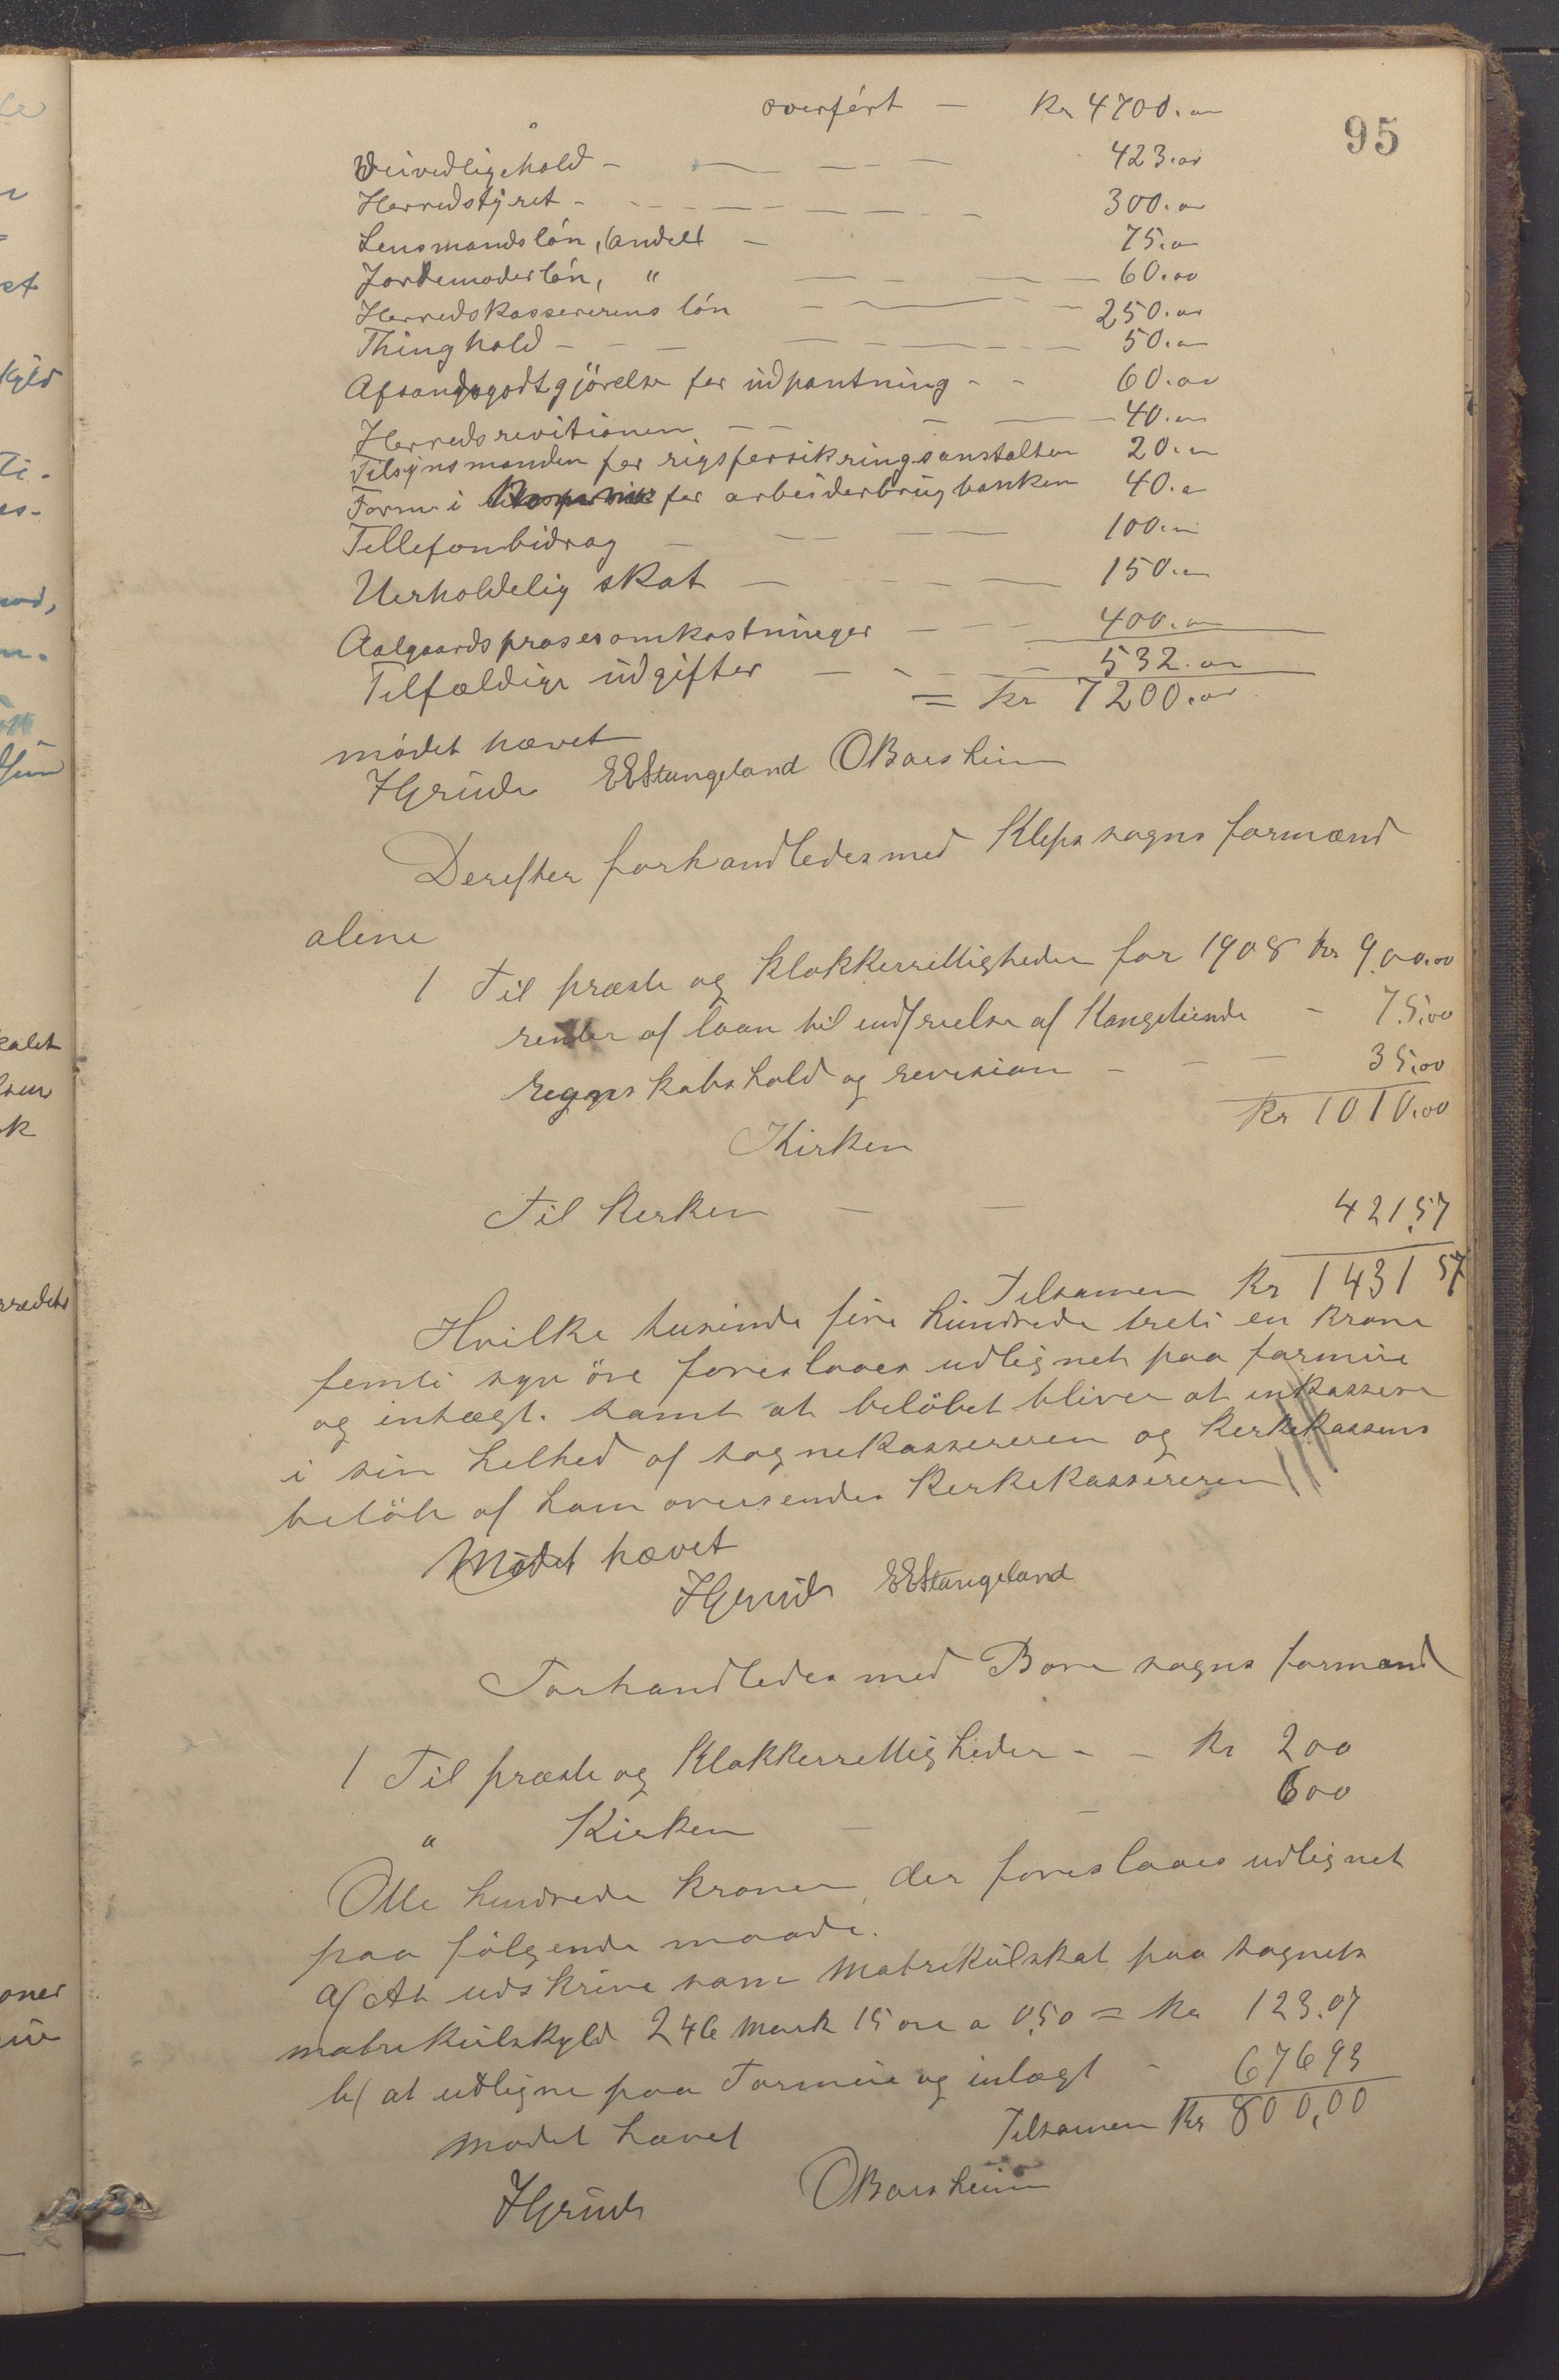 95
overført — Kr 4700.00
Veivedligehold — 423.00
Herredstyret — 300.00
Lensmandsløn, (andel) — 75.00
Jordemoderløn, " — 60.00
Herredskassererens løn — 250.00
Thinghold — 50.00
Afsangsgodtgjörelse for udpantning — 60.00
Herredsrevitionen — 40.00
Tilsynsmanden for rigsforsikringsanstalten 20.00
Form. i for arbeiderbrugbanken 40.00
Tellefonbidrag — 100.00
Uerholdelig skat — 150.00
Aalgaards prosesomkostninger — 400.00
Tilfældige udgifter — 532.00
= Kr 7200.00
mødet hævet
HGrude EEStangeland OBorsheim
Derefter forhandledes med Klepp sogns formænd
alene
1 Til præste og klokkerrettigheder for 1908 Kr 900.00
renter af laan til indfrielse af Kongetiende - 75,00
regnskabshold og revision - 35,00
Kr 1010,00
Kirken
Til Kirken — 421,57
Tilsamen Kr 1431 57
Hvilke tusinde fire hundrede treti en krone
femti syv öre foreslaaes udlignet paa formue
og intægt. samt at beløbet bliver at inkassere
i sin helhed af sognekassereren og kirkekassens
beløb af ham oversendes kirkekassereren
Mødet hævet
HGrude EEStangeland
Forhandledes med Bore sogns formænd
1 Til præste og Klokkerrettigheder - - Kr 200
" Kirken — 600
Otte hundrede kroner, der foreslaaes udlignet
paa følgende maade.
a/ At udskrive som Matrikülskat paa sognets
matrikülskyld 246 Mark 15 øre a 0,50 = Kr 123.07
b/ at udligne paa Formue og intægt - 676 93
Tilsamen Kr 800,00
Mødet hævet
HGrude OBorsheim